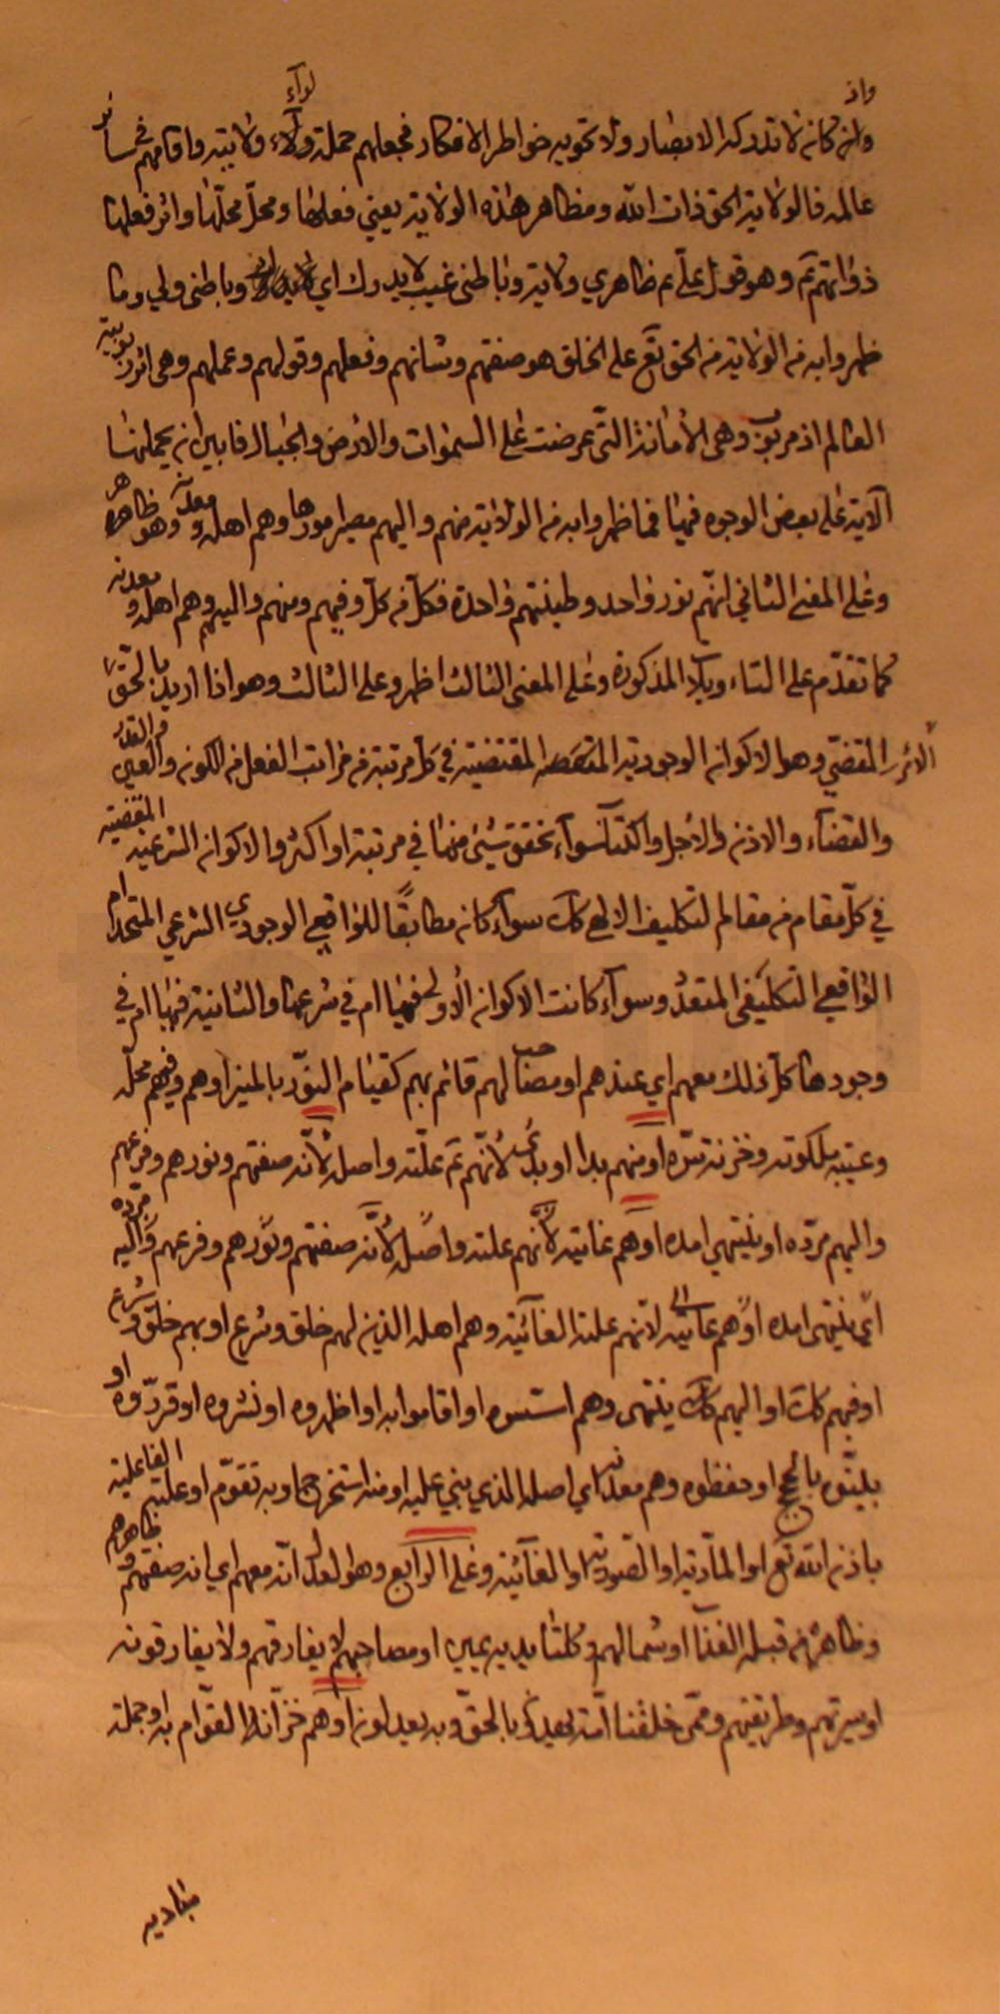 واذ
لوآء
واذ كان لا تدركه الابصار ولا تحويه خواطر الافكار فجعلهم حملة ولآء ولايته واقامهم في سائر
عالمه فالولاية الحق ذات الله ومظاهر هذه الولاية يعني فعلها ومحلّ محلّها واثر فعلها
ذواتهم ع وهو قول علي ع ظاهري ولاية وباطني غيب لا يدرك اي وباطني ولي وما
ظهروا به من الولاية من الحق تع على الخلق هو صفتهم وشانهم وفعلهم وقولهم وعملهم وهي اثر ربوبية
العالم اذ مربوب وهي الأمانة التي عرضت على السموات والارض والجبال فابين ان يحملنها
الآية على بعض الوجوه فيها فما ظهروا به من الولاية منهم واليهم مصير امورها وهم اهله ومعدنه وهو ظاهر
وعلى المعنى الثاني انهم نور واحد وطينتهم واحدة فكل من كل وفيهم ومنهم واليهم وهم اهله ومعدنه
كما تقدّم على التاء ويل المذكورة وعلى المعنى الثالث اظهر وعلى الثالث وهو اذا اريد بالحق
الاثر المقتضي وهو الاكوان الوجودية المقتضية في كل مرتبة من مراتب الفعل من الكون والعين والقدر
والقضآء والاذن والاجل والكتاب سوآء تحقق شيئ منها في مرتبة او اكثر والاكوان الشرعية المقتضية
في كلّ مقام من مقام التكليف الالهي كك سوآء كان مطابقًا للواقعي الوجودي الشرعي المتحد ام
الواقعي التكليفي المتعدد وسوآء كانت الاكوان الأولى فيها ام في شرعها والثانية فيها ام في
وجودها كل ذلك معهم اي عندهم او مصاحب لهم قائم بهم كقيام النور بالمنير او هم وفيهم محلّه
وعيبة ملكوته وخزنة سرّه او منهم بدا او بدئ لأنّهم ع علّته واصله لأنّه صفتهم ونورهم وفرعهم
واليهم مردّه او ينتهي امده او هم غايته لأنّهم علته واصله لأنّه صفتهم ونورهم وفرعهم واليه مردّه
اي ينتهي امده او هم غايته لانهم علته الغائية وهم اهله الذين لهم خلق وشرع او بهم خلق وشرع
او فيهم كك او اليهم كك ينتهي وهم اسّسوه او اقاموا به او اظهروه او نشروه او قرّروه او
بيّنوه بالحجج او حفظوه وهم معدنه اي اصله الذي بني عليه او منه استخرج او به تقوّم او علّته الفاعلية
باذن الله تع او المآدّية او الصورية او الغآئية وعلى الرابع وهو العدل انّه معهم اي انه صفتهم وظاهرهم
وظاهرهم من قبله العذاب او شمالهم وكلتا يديه يمين او مصاحبهم لا يفارقهم ولا يفارقونه
او سيرتهم وطريقتهم وممن خلقنا امة يهدون بالحقّ وبه يعدلون او هم خزّانه القوّام به او حملته